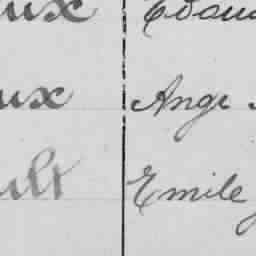 ux Edou
ux Ange
ult Emile